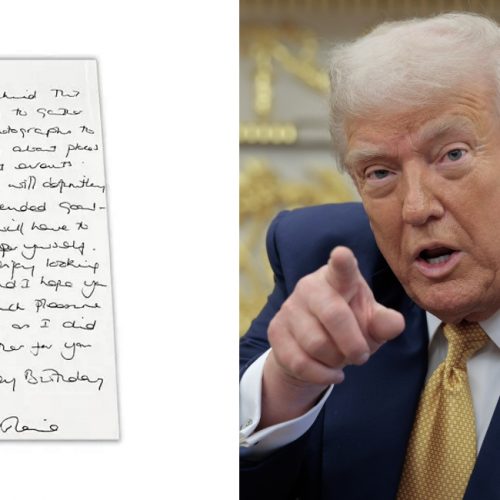 hind This
to gather
otographs to
about places
events
will definitely
ended goal-
will have to
yourself.
njoy looking
nd I hope you
ch pleasure
as I did
her for you
y Birthday